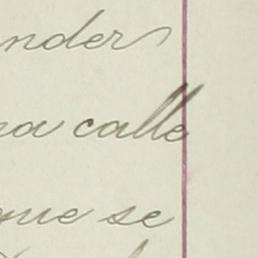 nder
na calle
que se